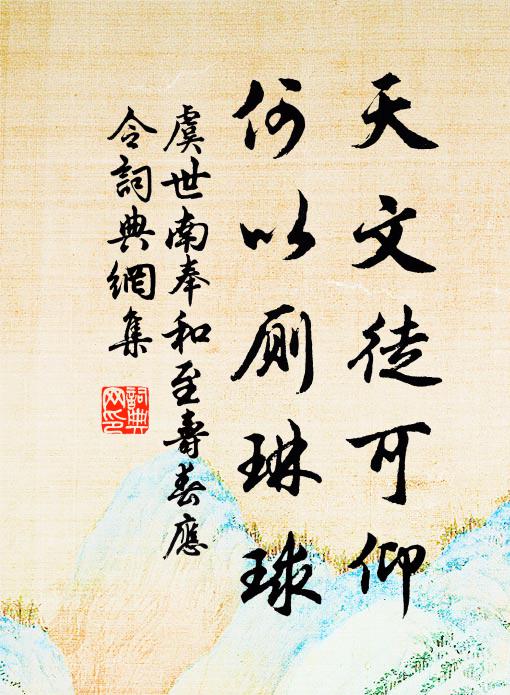 天文徒可仰
何以厠琳球
虞世南奉和至壽春應
令詞典網集
詞典網印